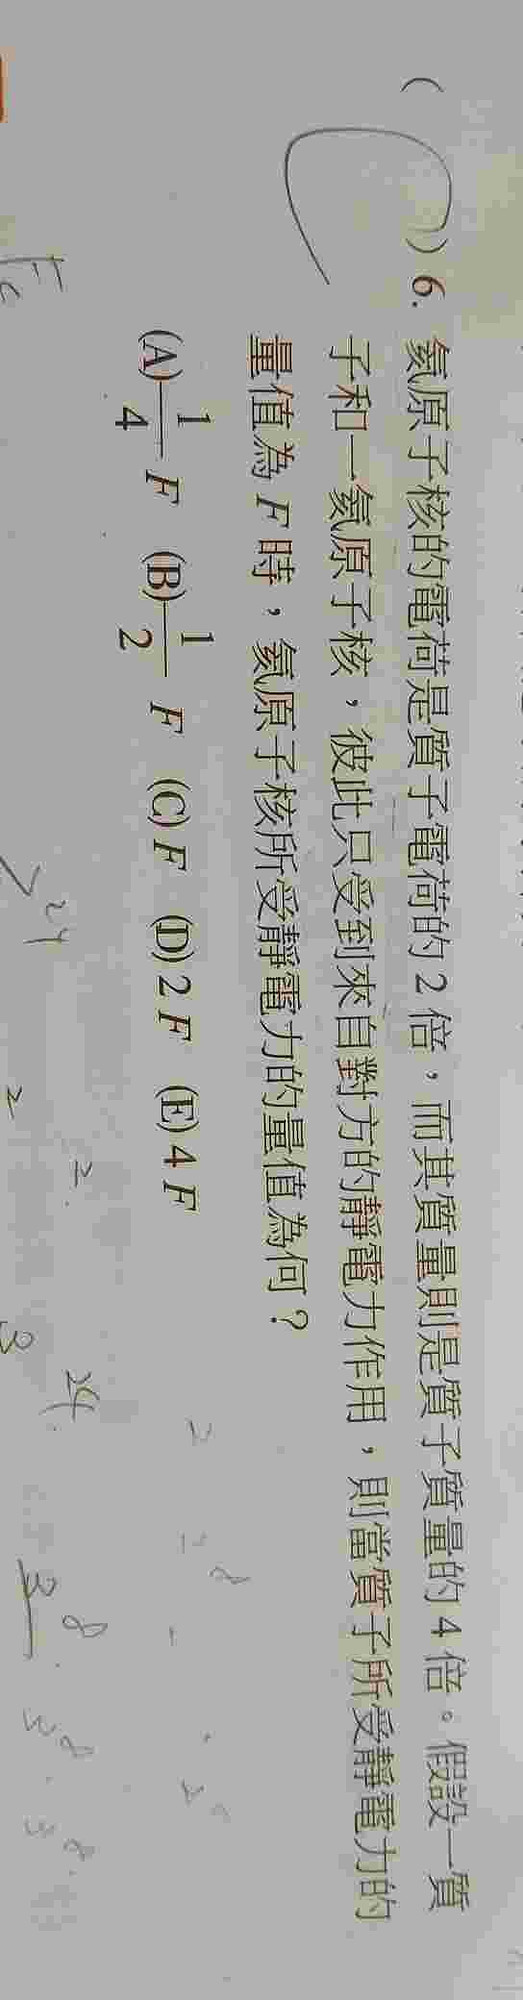 ( ) 6. 氦原子核的電荷是質子電荷的 2 倍，而其質量則是質子質量的 4 倍。假設一質
子和一氦原子核，彼此只受到來自對方的靜電力作用，則當質子所受靜電力的
量值為 F 時，氦原子核所受靜電力的量值為何？
(A) 1/4 F (B) 1/2 F (C) F (D) 2 F (E) 4 F